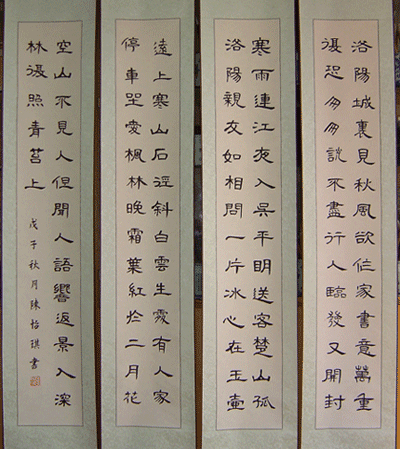 洛陽城裏見秋風欲作家書意萬重
復恐匆匆說不盡行人臨發又開封
寒雨連江夜入吳平明送客楚山孤
洛陽親友如相問一片冰心在玉壺
遠上寒山石徑斜白雲生處有人家
停車坐愛楓林晚霜葉紅於二月花
空山不見人但聞人語響返景入深
林復照青苔上
戊子秋月陳怡琪書